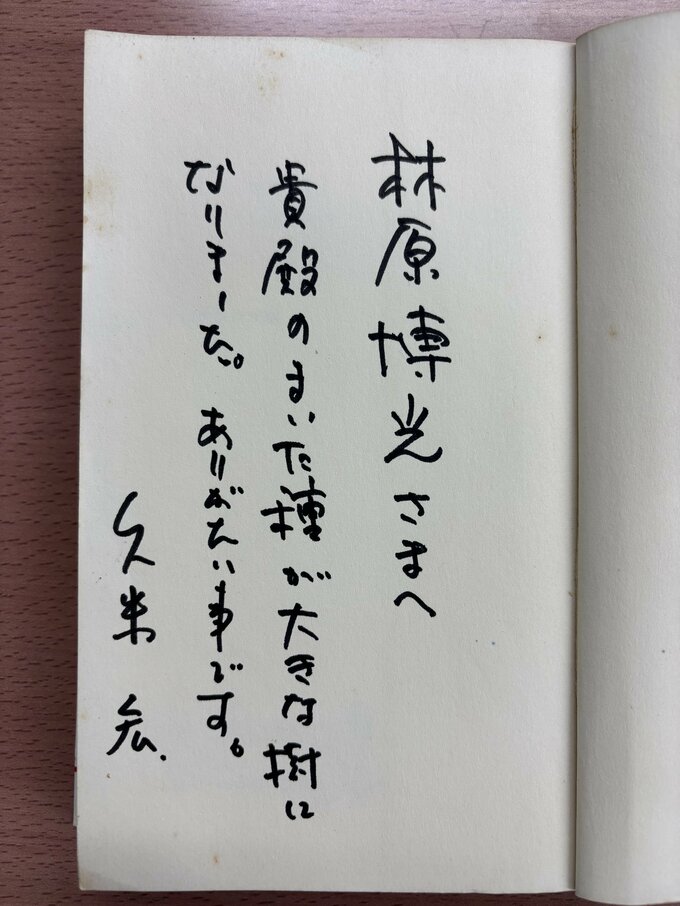 林原博光さまへ
貴殿のまいた種が大きな樹に
なりました。ありがたい事です。
久米宏.